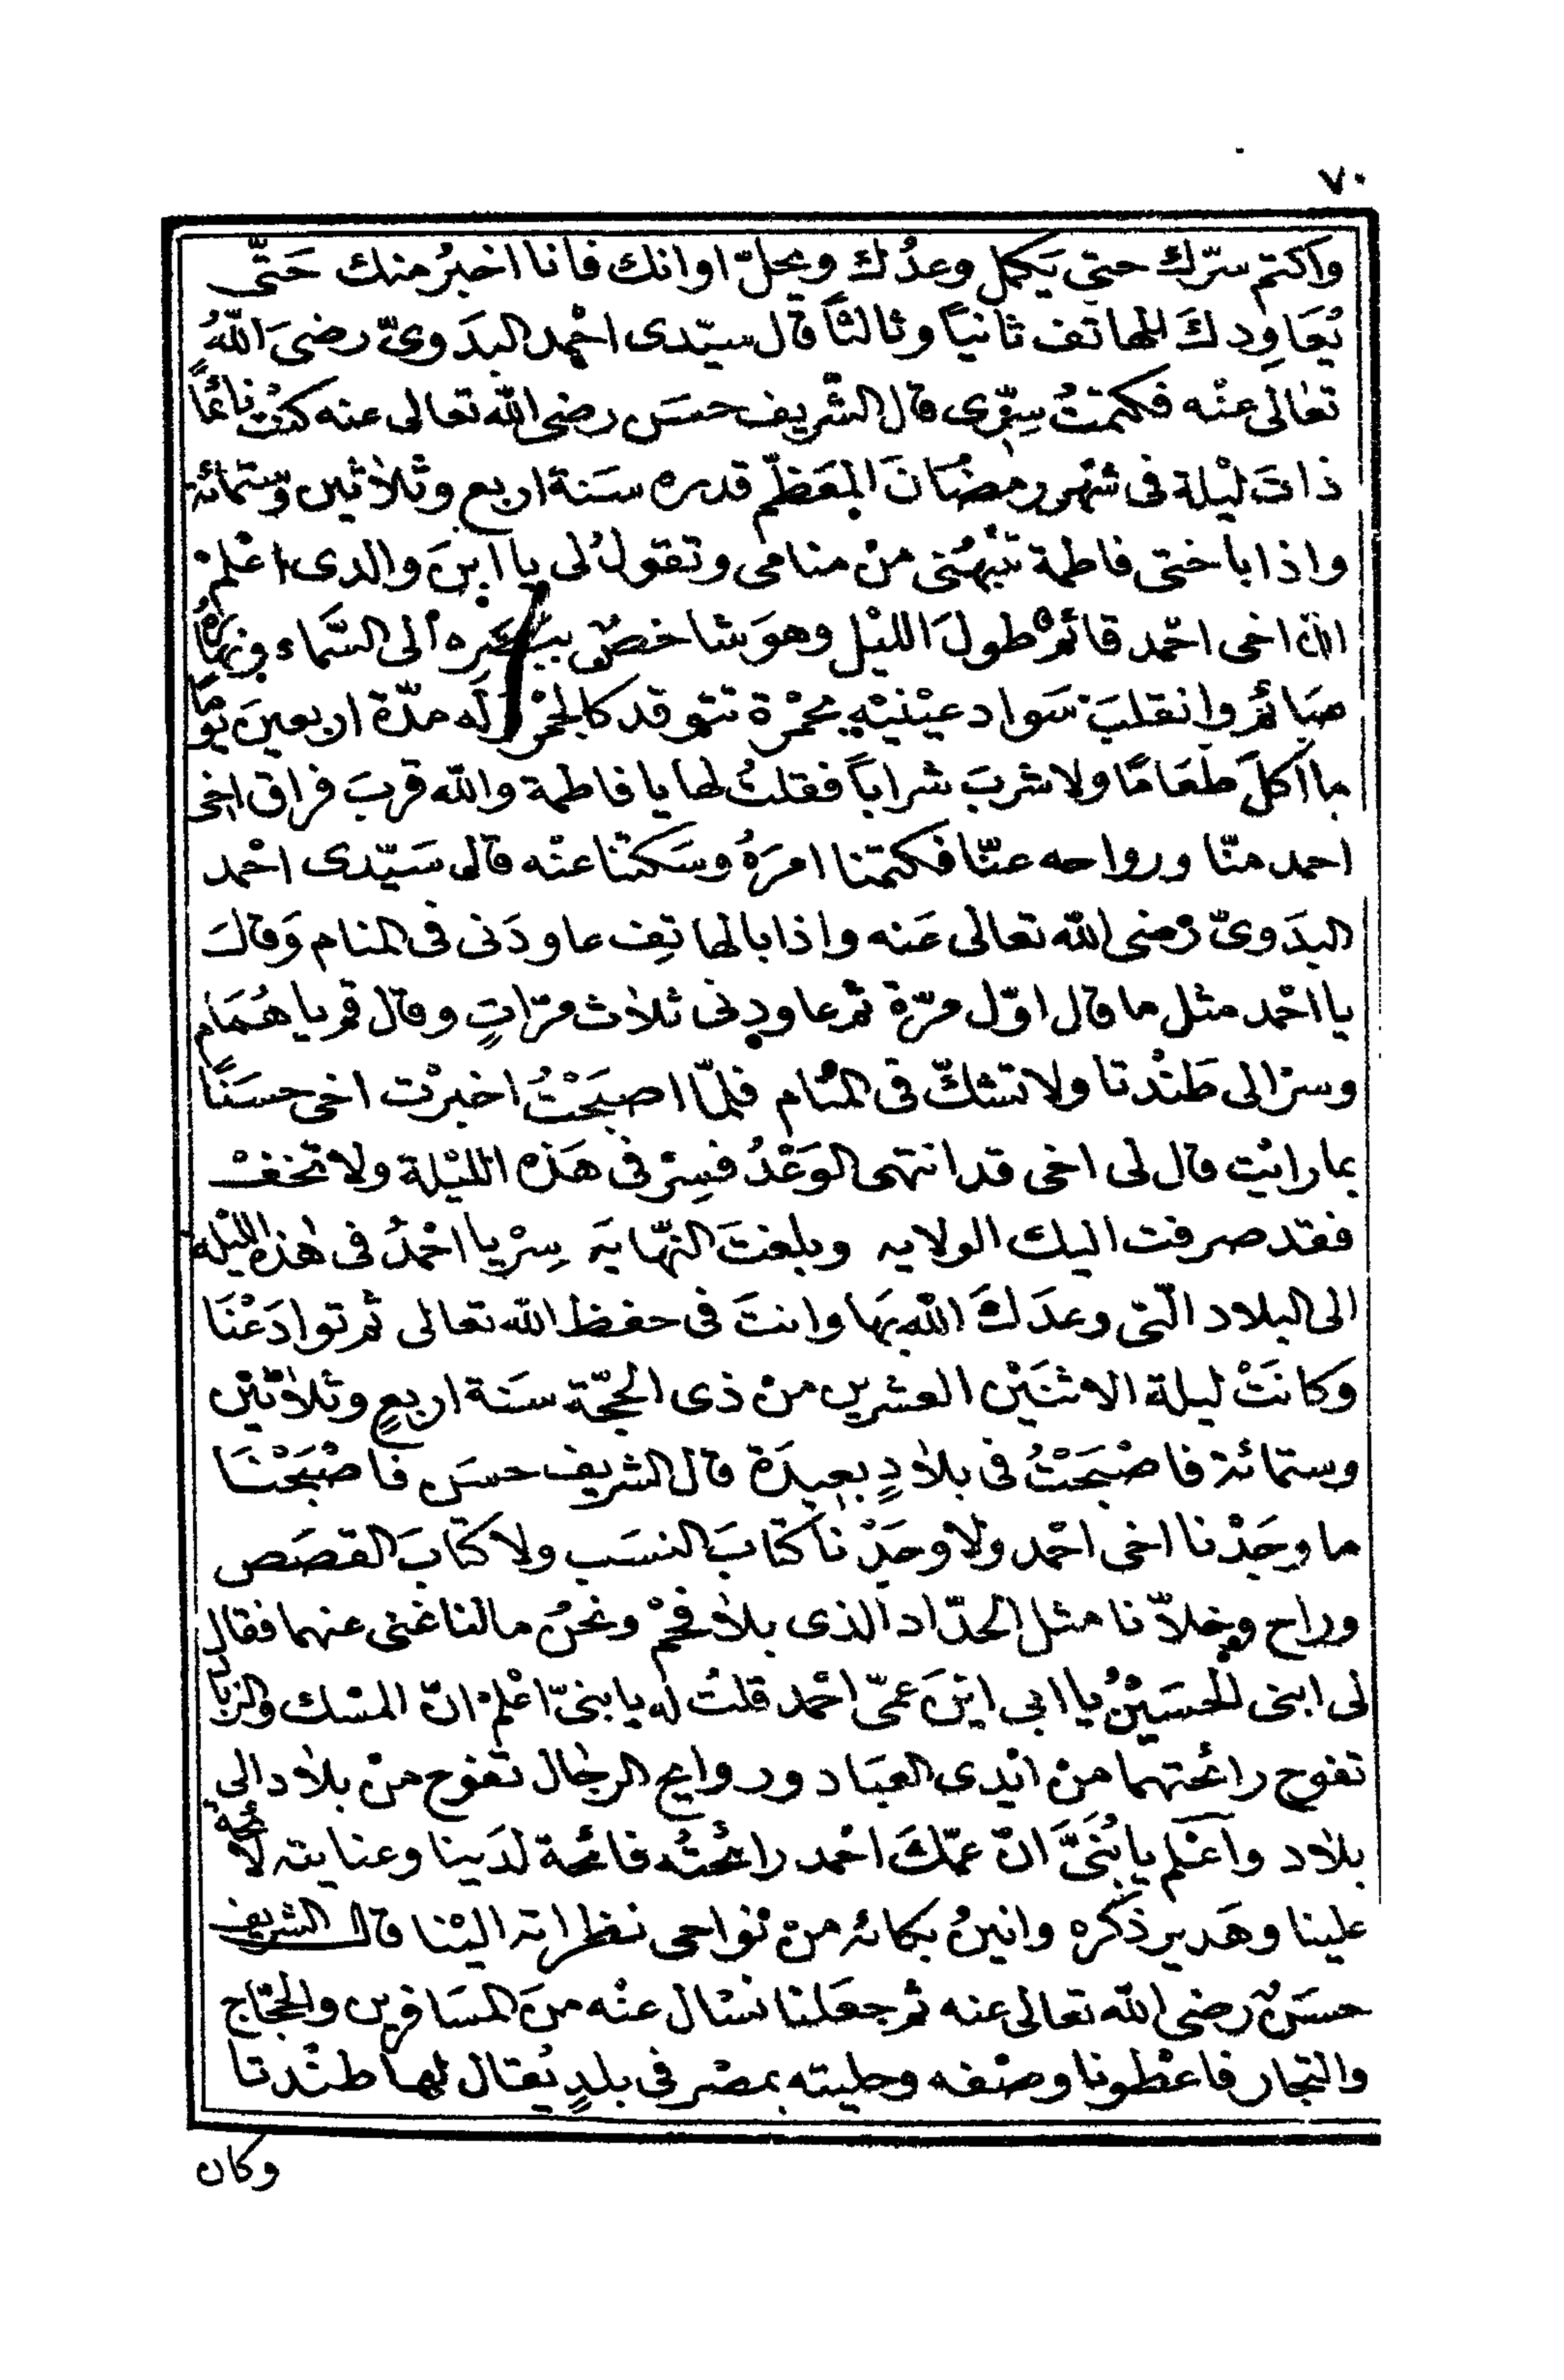 ٧٠
واكتم سرّك حتى يَكمل وعدُك ويحلّ اوانك فانا اخبرُ منك حَتّى
يُعَاوِدكَ الهاتف ثانياً وثالثاً قال سيّدى احْمد البدَوىّ رضىَ اللّٰهُ
تعالى عنْه فكتمتُ سِرّى قال الشّريف حسَن رضى الله تعالى عنه كنْت نائماً
ذاتَ ليْلة فى شهْر رمضَانَ المعَظّم قدره سَنة اربع وثلاثين وستمائة
واذا باختى فاطمة تنبّهنى منْ منامى وتقولُ لى يا ابنَ والدى اعْلمْ
انّ اخى احْمد قائمٌ طولَ الليْل وهوَ شاخصٌ ببصَره الى السّمَاء ونهارُهُ
صَائمٌ وانقلبَ سَواد عيْنيْه بحمْرة تتوقد كالجمْر وَله مدّة اربعينَ يَوْمًا
ما اكلَ طعَامًا ولا شربَ شراباً فقلتُ لها يا فاطمة والله قربَ فراق اخى
احمد منّا ورواحه عنّا فكتمْنا امرَهُ وسَكتْنا عنْه قال سَيّدى احْمد
البدَوىّ رَضى الله تعالى عَنه واذا بالهاتِف عاودَنى فى المنام وَقالَ
يا احْمد مثل ما قال اوّل مرّة ثم عاودنى ثلاث مرّاتٍ وقال قم يا هُمَام
وسرْ الى طَنْدتا ولا تشكّ فى المنام فلمّا اصبَحْتُ اخبرْت اخى حسَنًا
بما رايْت قال لى اخى قد انتهى الوَعْدُ فسِرْ فى هَذه الليْلة ولا تخفْ
فقد صرفت اليك الولايه وبلغتَ النّهايَه سِرْ يا احْمدُ فى هٰذه الليْله
الى البلاد الّتى وعدَكَ اللّٰه بهَا وانتَ فى حفظ الله تعالى ثم توادَعْنَا
وَكانَتْ ليلة الاثنَيْن العشرين منْ ذى الحجّة سَنة اربعٍ وثلاثيْن
وستمائة فاصْبَحْتُ فى بلادٍ بعيدَة قال الشريف حسَن فاصْبَحْنَا
ما وجَدْنا اخى احْمد ولا وجَدْنا كتابَ النسَب ولا كتابَ القصَص
وراح وخلاّنا مثل الحدّاد الذى بلا فحمْ ونحنُ ما لنا غنى عنهما فقال
لى ابنى الحسَيْنُ يا ابى ايْنَ عمّى احْمد قلتُ له يا بنىّ اعْلمْ انّ المسْك والزباد
تفوح رائحتهما منْ ايْدى العبَاد وروايح الرجال تفوح منْ بلاد الى
بلاد واعْلم يا بُنَىَّ انّ عمّكَ احْمد رائحتُه فائحة لدَينا وعنايته لائحة
علينا وهَدير ذكره وانينُ بكائه منْ نواحى نظراته اليْنا قال الشريف
حسَنٌ رضى الله تعالى عنه ثم جعَلنا نسْال عنْه منَ المسَافرين والحجّاج
والتجار فاعْطونا وصْفه وحليته بمصْر فى بلدٍ يُقال لها طنْدتا
وكان